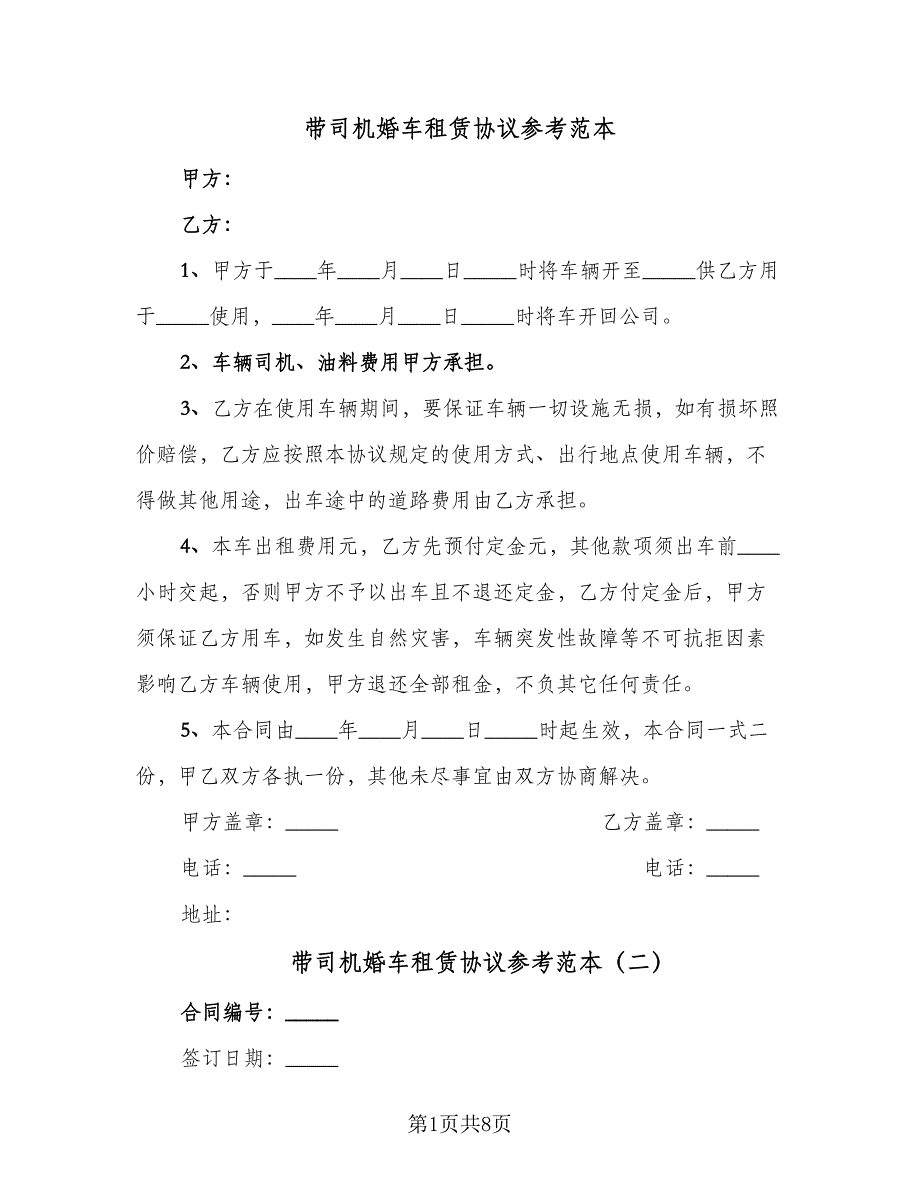 带司机婚车租赁协议参考范本
甲方：
乙方：
1、甲方于____年____月____日_____时将车辆开至_____供乙方用
于_____使用，____年____月____日_____时将车开回公司。
2、车辆司机、油料费用甲方承担。
3、乙方在使用车辆期间，要保证车辆一切设施无损，如有损坏照
价赔偿，乙方应按照本协议规定的使用方式、出行地点使用车辆，不
得做其他用途，出车途中的道路费用由乙方承担。
4、本车出租费用元，乙方先预付定金元，其他款项须出车前____
小时交起，否则甲方不予以出车且不退还定金，乙方付定金后，甲方
须保证乙方用车，如发生自然灾害，车辆突发性故障等不可抗拒因素
影响乙方车辆使用，甲方退还全部租金，不负其它任何责任。
5、本合同由____年____月____日_____时起生效，本合同一式二
份，甲乙双方各执一份，其他未尽事宜由双方协商解决。
甲方盖章：_____ 乙方盖章：_____
电话：_____ 电话：_____
地址：
带司机婚车租赁协议参考范本（二）
合同编号：_____
签订日期：_____
第1页共8页